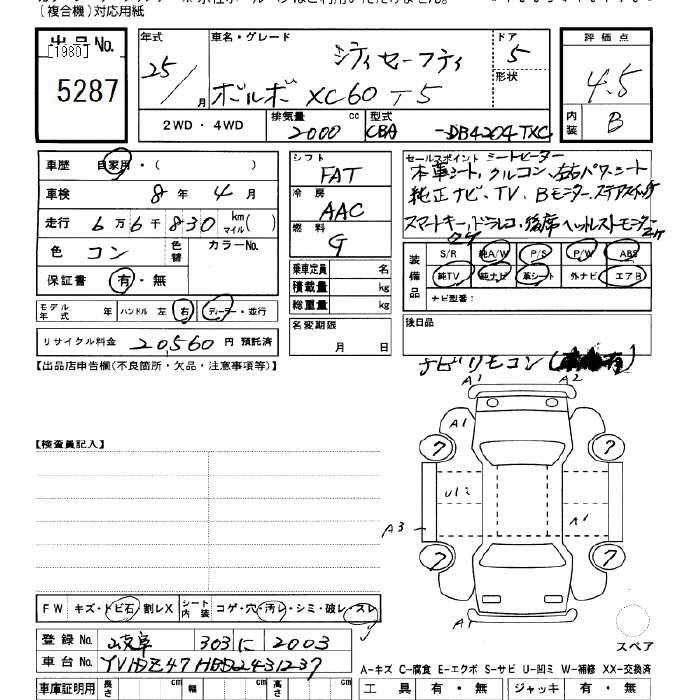 (複合機)対応用紙
出品No.
[1980]
5287
年式 25/ 月
車名・グレード シティセーフティ
ボルボ XC60 T5
ドア 5
形状
評価点 4.5
内装 B
2WD・4WD
排気量 2000 cc
型式 CBA -DB4204TXC
車歴 自家用・( )
車検 8年 4月
走行 6万6千830 km マイル( )
色 コン 色替 カラーNo.
保証書 有・無
シフト FAT
冷房 AAC
燃料 G
乗車定員 名
積載量 kg
総重量 kg
名変期限 月 日
セールスポイント シートヒーター
本革シート、クルコン、左右パワーシート
純正ナビ、TV、Bモニター、ステアスイッチ
スマートキー、ドラレコ、後席ヘッドレストモニター
装備品 S/R 純A/W P/S P/W ABS
純TV 純ナビ 革シート 外ナビ エアB
ナビ型番:
モデル年式 年 ハンドル 左 右 ディーラー・並行
リサイクル料金 20,560 円 預託済
後日品
ナビリモコン (有)
【出品店申告欄(不良箇所・欠品・注意事項等)】
A1 A2
A1
7 7
【検査員記入】
U1 A1
A3
7 7
A2
FW キズ・トビ石・割レX シート内装 コゲ・穴・汚レ・シミ・破レ・スレ
スペア
登録No. 岐阜 303 に 2003
車台No. YV1DZ47HBD2431237
A-キズ C-腐食 E-エクボ S-サビ U-凹ミ W-補修 XX-交換済
車庫証明用 長さ cm 幅 cm 高さ cm
工具 有・無 ジャッキ 有・無